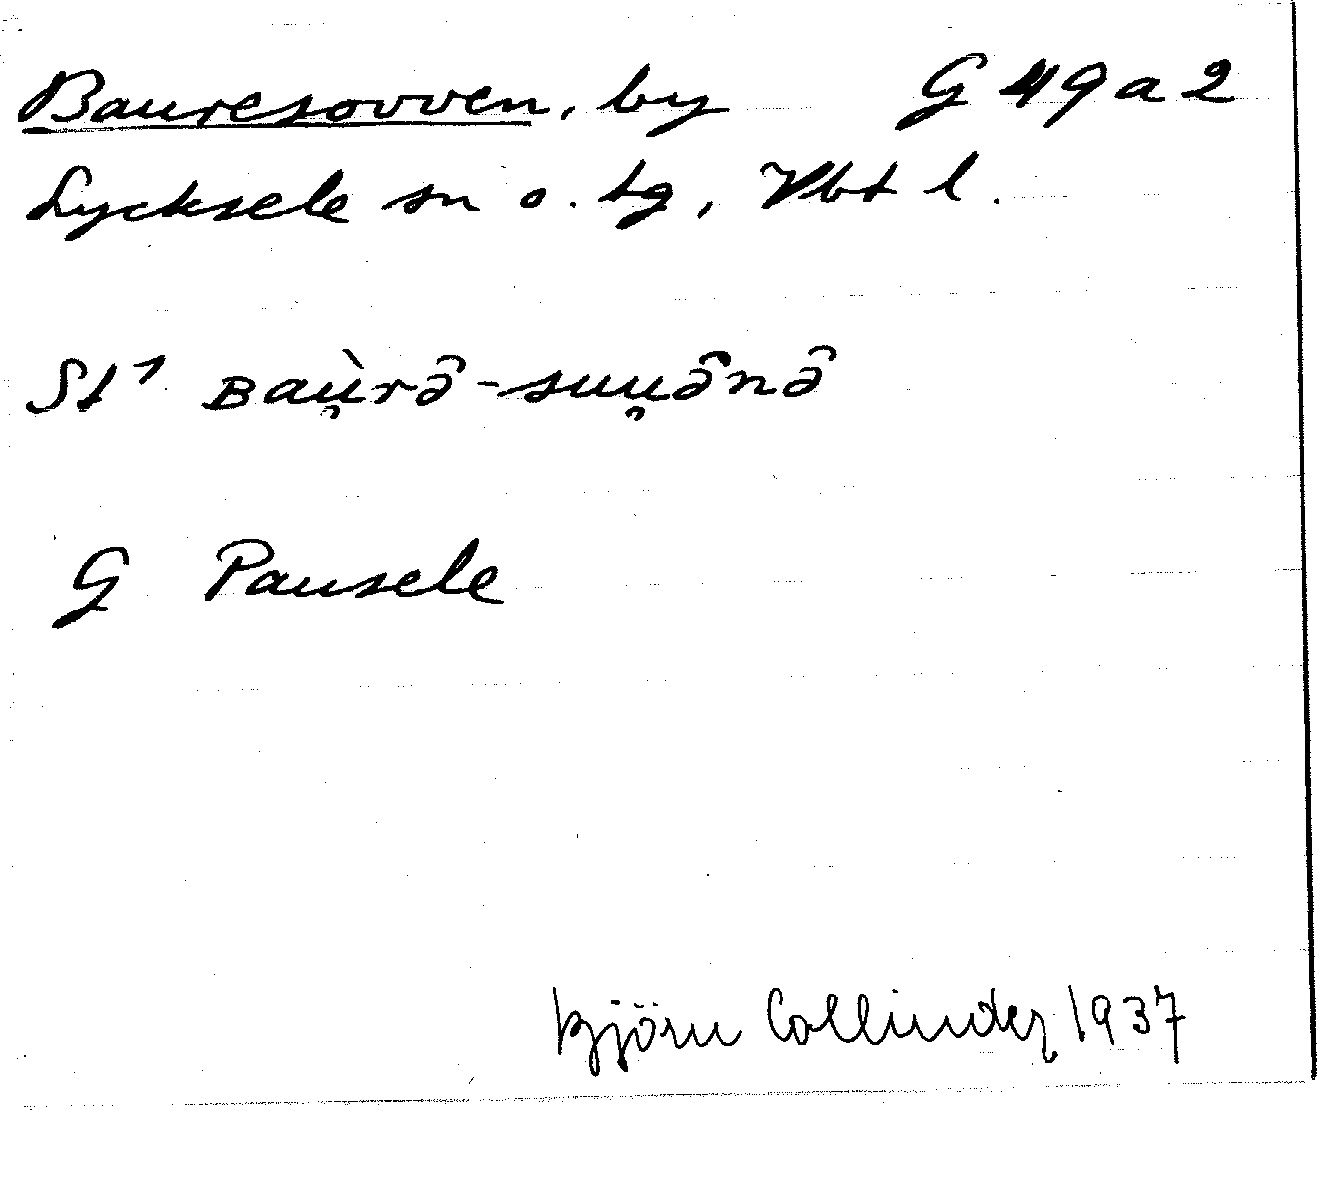 Bauresovven, by G 49 a 2
Lycksele sn o. tg, Vbt l.
St¹ ʙaù̯rə̂-suu̯ə̂nə̂
G Pausele
Björn Collinder 1937